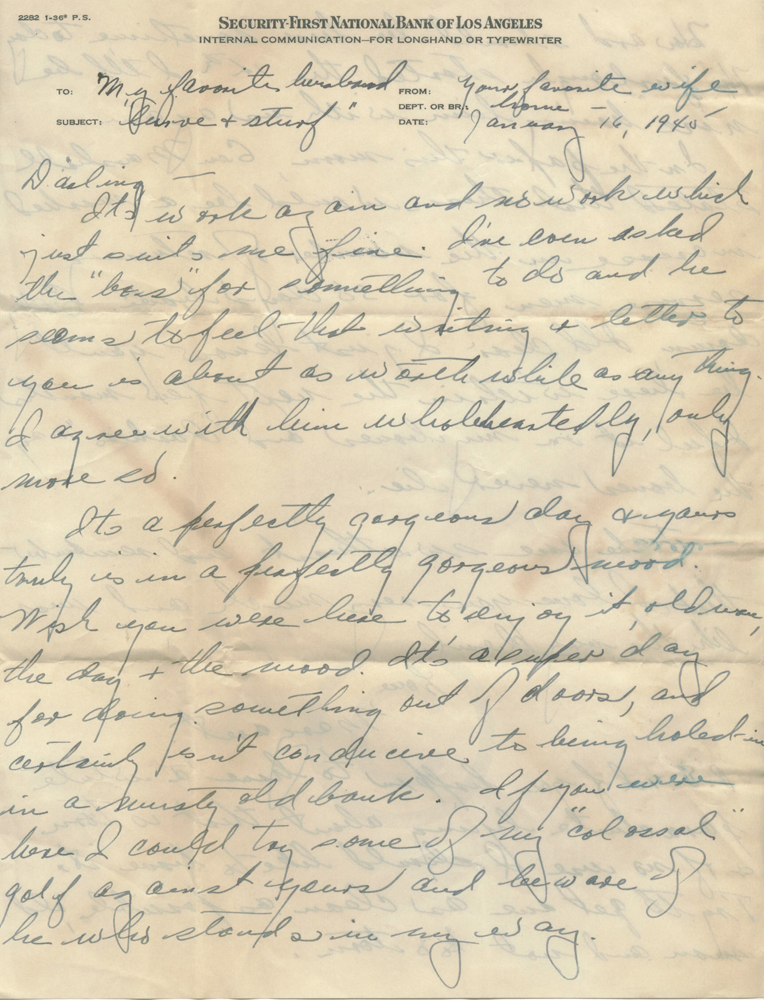 2282 1-36* P. S.
SECURITY-FIRST NATIONAL BANK OF LOS ANGELES
INTERNAL COMMUNICATION—FOR LONGHAND OR TYPEWRITER
TO: "My favorite husband FROM: Your favorite wife
DEPT. OR BR.: home
SUBJECT: "Curve + sturf" DATE: January 16, 1945
Darling —
It's work again and no work which
just suits me fine. I've even asked
the "boss" for something to do and he
seems to feel that writing a letter to
you is about as worth while as any thing.
I agree with him wholeheartedly, only
more so.
Its a perfectly gorgeous day & yours
truly is in a perfectly gorgeous mood.
Wish you were here to enjoy it, old man,
the day + the mood. It's a super day
for doing something out of doors, and
certainly isn't conducive to being holed-in
in a musty old bank. If you were
here I could try some of my "colossal"
golf against yours and beware of
he who stands in my way.